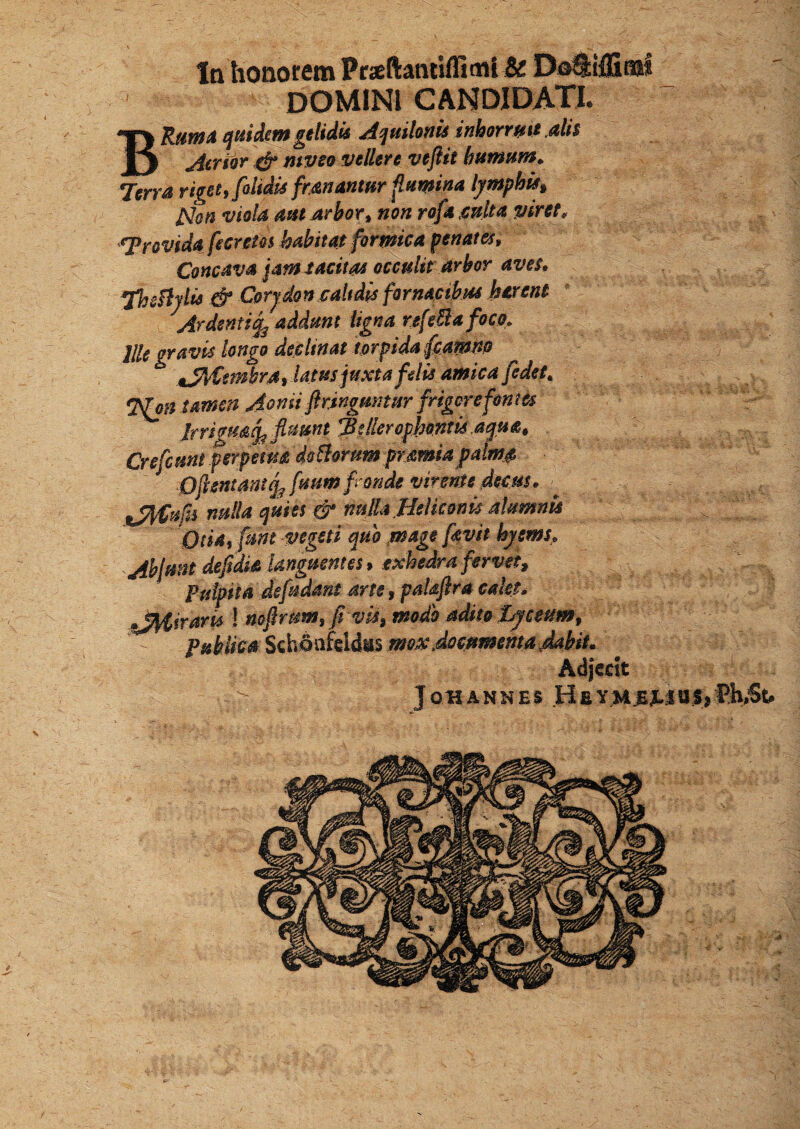 In honorem Præſtantiſſimi & Doctiſſimi
DOMINI CANDIDATI.
BRuma quidem gelidis Aquilonis inhorruit alis
Acrior & niveo vellere veſtit humum.
Terra riget, ſolidis frænantur flumina lymphis,
Non viola aut arbor, non roſa culta viret.
Provida ſecretos habitat formica penates,
Concava jam tacitas occulit arbor aves.
Theſtylis & Corydon calidis fornacibus hærent
Ardentiq; addunt ligna refecta foco.
Ille gravis longo declinat torpida ſcamno
Membra, latus juxta felis amica ſedet.
Non tamen Aonii ſtringuntur frigore fontes
Irriguæq; fluunt Bellerophontis aquæ.
Creſcunt perpetuæ doctorum præmia palmæ
Oſtentantq; ſuum fronde virente decus.
Muſis nulla quies & nulla Heliconis alumnis
Otia, ſunt vegeti quo mage ſævit hyems.
Abſunt deſidiæ languentes, exhedra fervet,
Pulpita deſudant arte, palæſtra calet.
Miraris ! noſtrum, ſi vis, modò adito Lyceum,
Publica Schönfeldus mox documenta dabit.
Adjecit
JOHANNES HEYMELIUS, Ph. St.